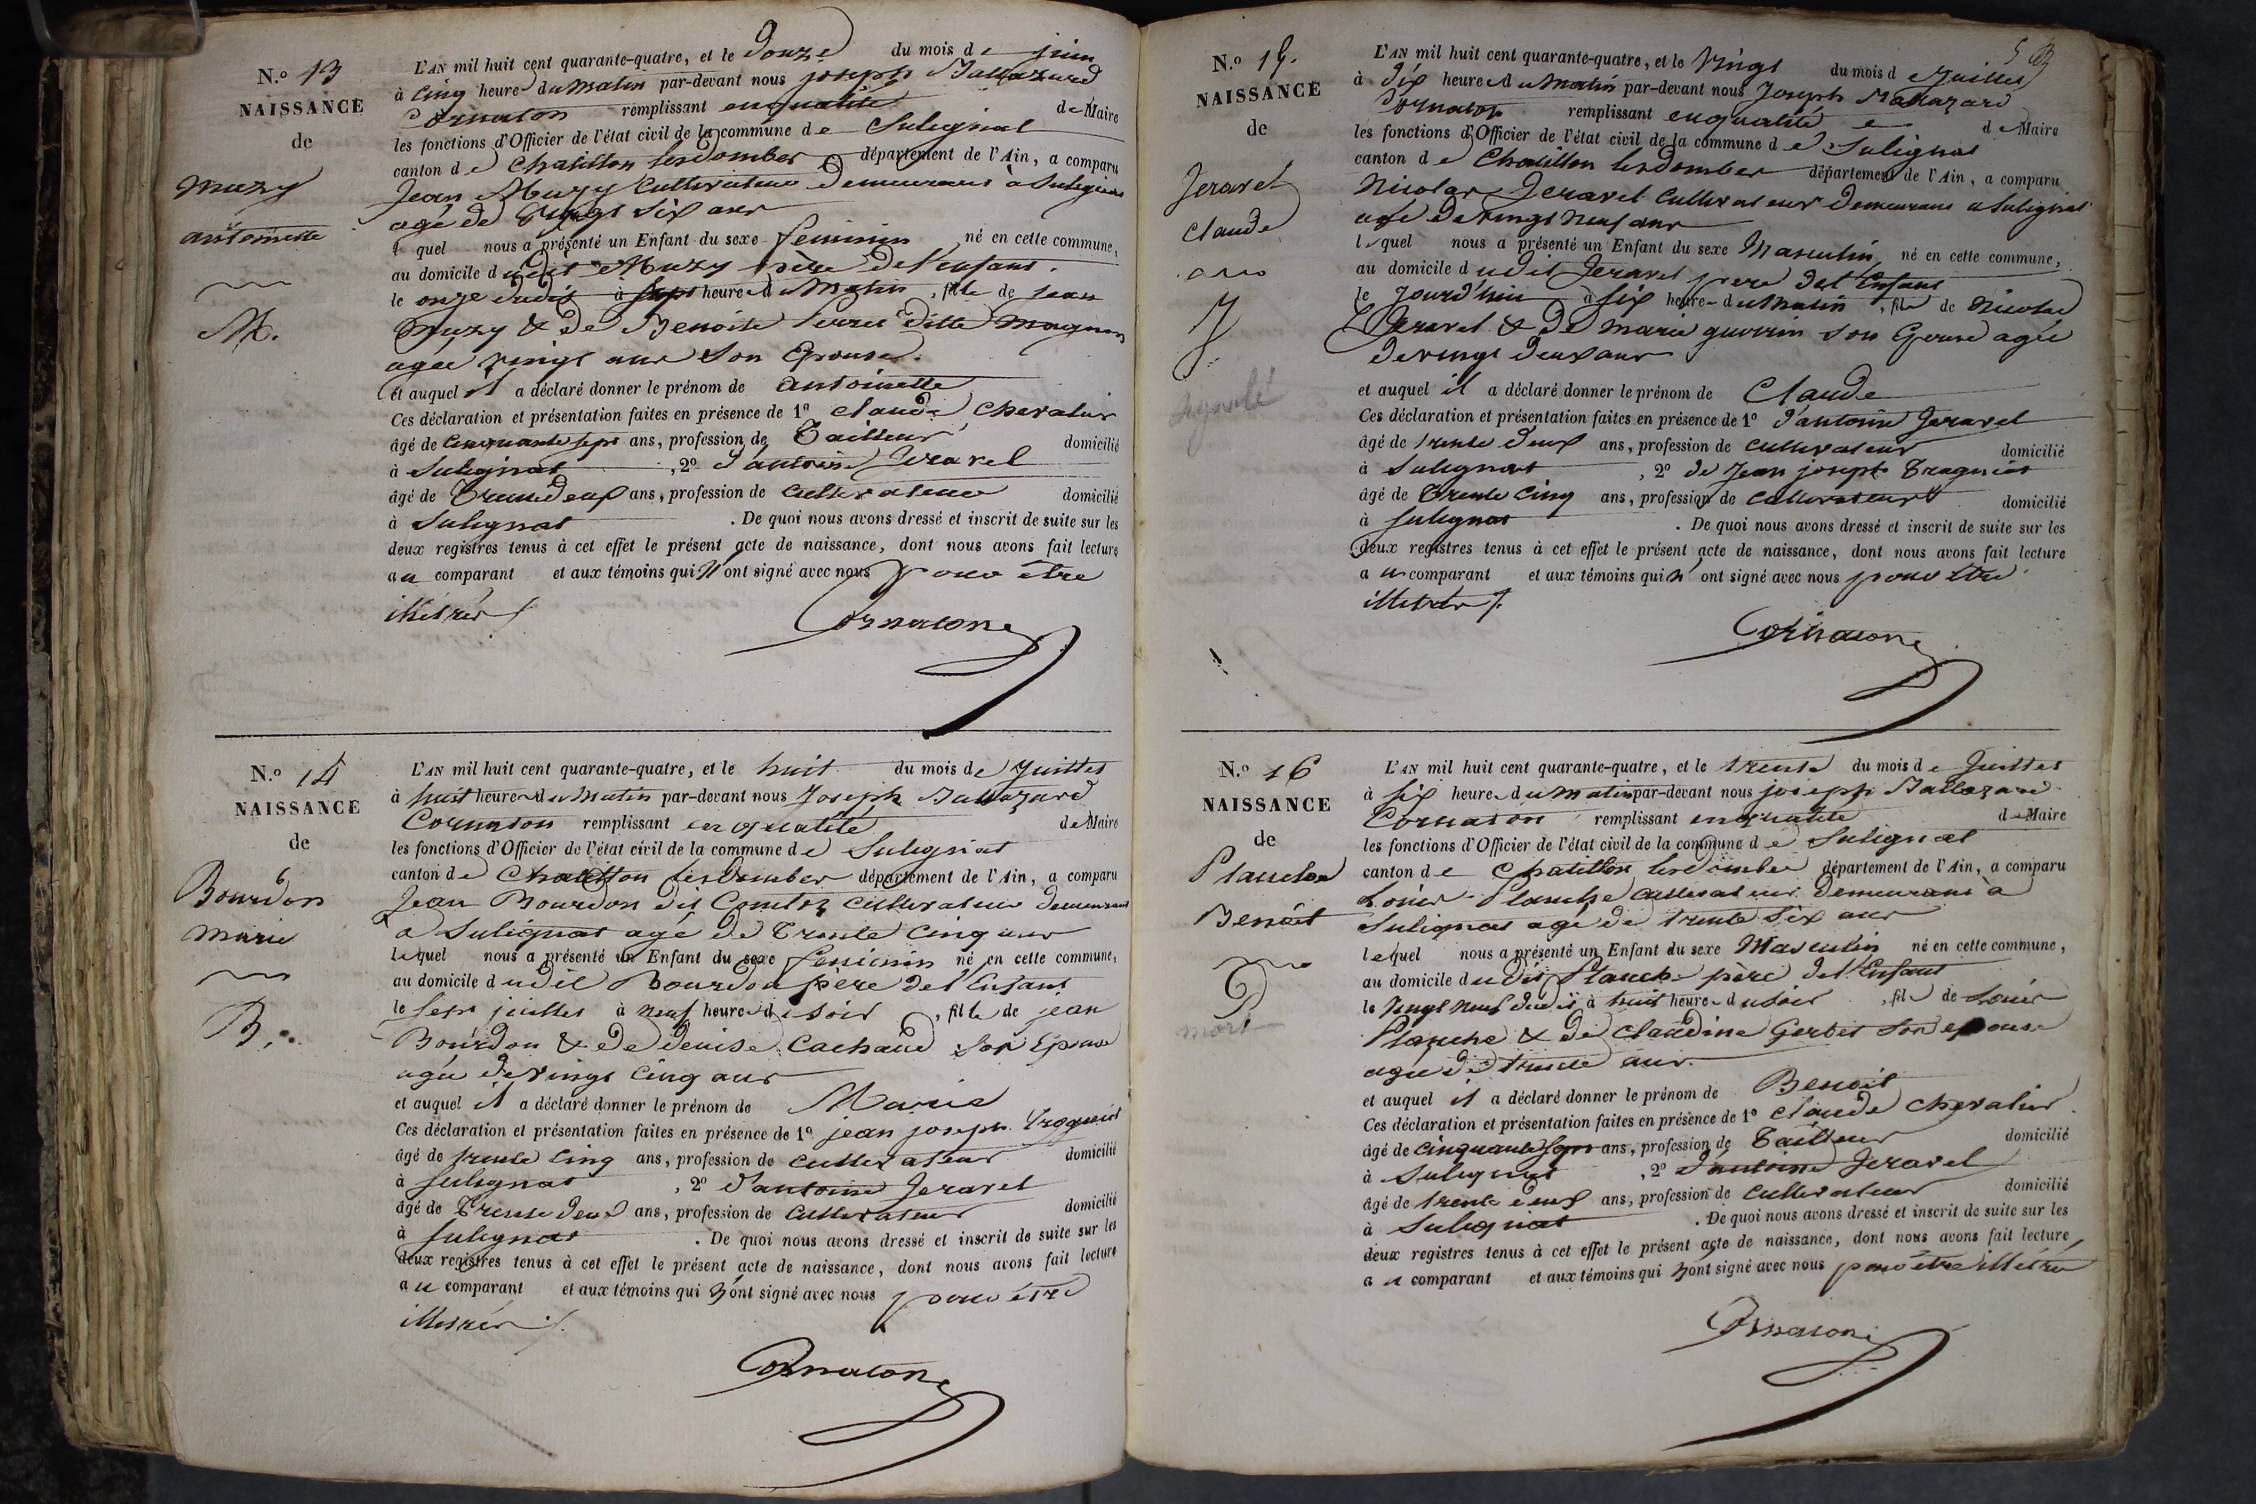 N.º 13
NAISSANCE
de
Muzy
antoinette
M.
L'AN mil huit cent quarante-quatre, et le Douze du mois de juin
à cinq heure du Matin par-devant nous joseph Baltazard
Cornaton remplissant en qualité de Maire
les fonctions d'Officier de l'état civil de la commune de Sulignat
canton de Chatillon les dombes département de l'Ain, a comparu
Jean Muzy Cultivateur Demeurant à Sulignat
agé de vingt six ans
le quel nous a présenté un Enfant du sexe feminin né en cette commune,
au domicile dudit Muzy père de l'enfant.
le onze dudit à sept heure du Matin, fille de jean
Muzy & de Benoite Perret ditte Magnon
agée vingt ans Son Epouse.
et auquel il a déclaré donner le prénom de antoinette
Ces déclaration et présentation faites en présence de 1º claude chevalier
âgé de cinquante sept ans, profession de Tailleur domicilié
à Sulignat, 2º d'antoine Jeravel
âgé de Trente deux ans, profession de cultivateur domicilié
à Sulignat. De quoi nous avons dressé et inscrit de suite sur les
deux registres tenus à cet effet le présent acte de naissance, dont nous avons fait lecture
au comparant et aux témoins qui n'ont signé avec nous pour être
illétrés /.
Cornaton
N.º 14
NAISSANCE
de
Bourdon
Marie
B.
L'AN mil huit cent quarante-quatre, et le huit du mois de juillet
à huit heure du Matin par-devant nous Joseph Baltazard
Cornaton remplissant en qualité de Maire
les fonctions d'Officier de l'état civil de la commune de Sulignat
canton de Chatillon les Dombes département de l'Ain, a comparu
Jean Bourdon dit cultivateur demeurant
a Sulignat agé de Trente cinq ans
lequel nous a présenté un Enfant du sexe feminin né en cette commune,
au domicile dudit Bourdon père de l'Enfant
le sept juillet à neuf heure du soir, fille de jean
Bourdon & de Denise Cachaud Son Epouse
agée de vingt cinq ans
et auquel il a déclaré donner le prénom de Marie
Ces déclaration et présentation faites en présence de 1º jean joseph Tragniat
âgé de trente cinq ans, profession de cultivateur domicilié
à Sulignat, 2º d'antoine Jeravel
âgé de Trente deux ans, profession de cultivateur domicilié
à Sulignat. De quoi nous avons dressé et inscrit de suite sur les
deux registres tenus à cet effet le présent acte de naissance, dont nous avons fait lecture
au comparant et aux témoins qui n'ont signé avec nous pour être
illétrés /.
Cornaton
N.º 15.
NAISSANCE
de
Jeravel
claude
J
L'AN mil huit cent quarante-quatre, et le Vingt du mois de Juillet
à dix heure du Matin par-devant nous Joseph Baltazard
Cornaton remplissant en qualité de Maire
les fonctions d'Officier de l'état civil de la commune de Sulignat
canton de Chatillon les dombes département de l'Ain, a comparu
Nicolas Jeravel Cultivateur Demeurant a Sulignat
agé de vingt neuf ans
lequel nous a présenté un Enfant du sexe Masculin né en cette commune,
au domicile dudit Jeravel père de l'Enfant
le jourd'hui à six heure du Matin, fils de Nicolas
Jeravel & de Marie guerrin son Epouse agée
de vingt deux ans
et auquel il a déclaré donner le prénom de Claude
Ces déclaration et présentation faites en présence de 1º d'antoine Jeravel
âgé de trente deux ans, profession de cultivateur domicilié
à Sulignat, 2º de jean joseph Tragniat
âgé de Trente cinq ans, profession de cultivateur domicilié
à Sulignat. De quoi nous avons dressé et inscrit de suite sur les
deux registres tenus à cet effet le présent acte de naissance, dont nous avons fait lecture
au comparant et aux témoins qui n'ont signé avec nous pour être
illétrés /.
Cornaton
N.º 16
NAISSANCE
de
Planche
Benoit
P
mort
L'AN mil huit cent quarante-quatre, et le trente du mois de Juillet
à six heure du Matin par-devant nous joseph Baltazard
Cornaton remplissant en qualité de Maire
les fonctions d'Officier de l'état civil de la commune de Sulignat
canton de Chatillon les dombes département de l'Ain, a comparu
Louis Planche cultivateur demeurant à
Sulignat agé de trente six ans
lequel nous a présenté un Enfant du sexe Masculin né en cette commune,
au domicile dudit Planche père de l'Enfant
le vingt neuf dudit à huit heure du soir, fils de Louis
Planche & de Claudine Gerbet son epouse
agée de trente ans.
et auquel il a déclaré donner le prénom de Benoit
Ces déclaration et présentation faites en présence de 1º claude chevalier
âgé de cinquante sept ans, profession de Tailleur domicilié
à Sulignat, 2º d'antoine Jeravel
âgé de trente deux ans, profession de cultivateur domicilié
à Sulignat. De quoi nous avons dressé et inscrit de suite sur les
deux registres tenus à cet effet le présent acte de naissance, dont nous avons fait lecture
au comparant et aux témoins qui n'ont signé avec nous pour être illétrés
Cornaton